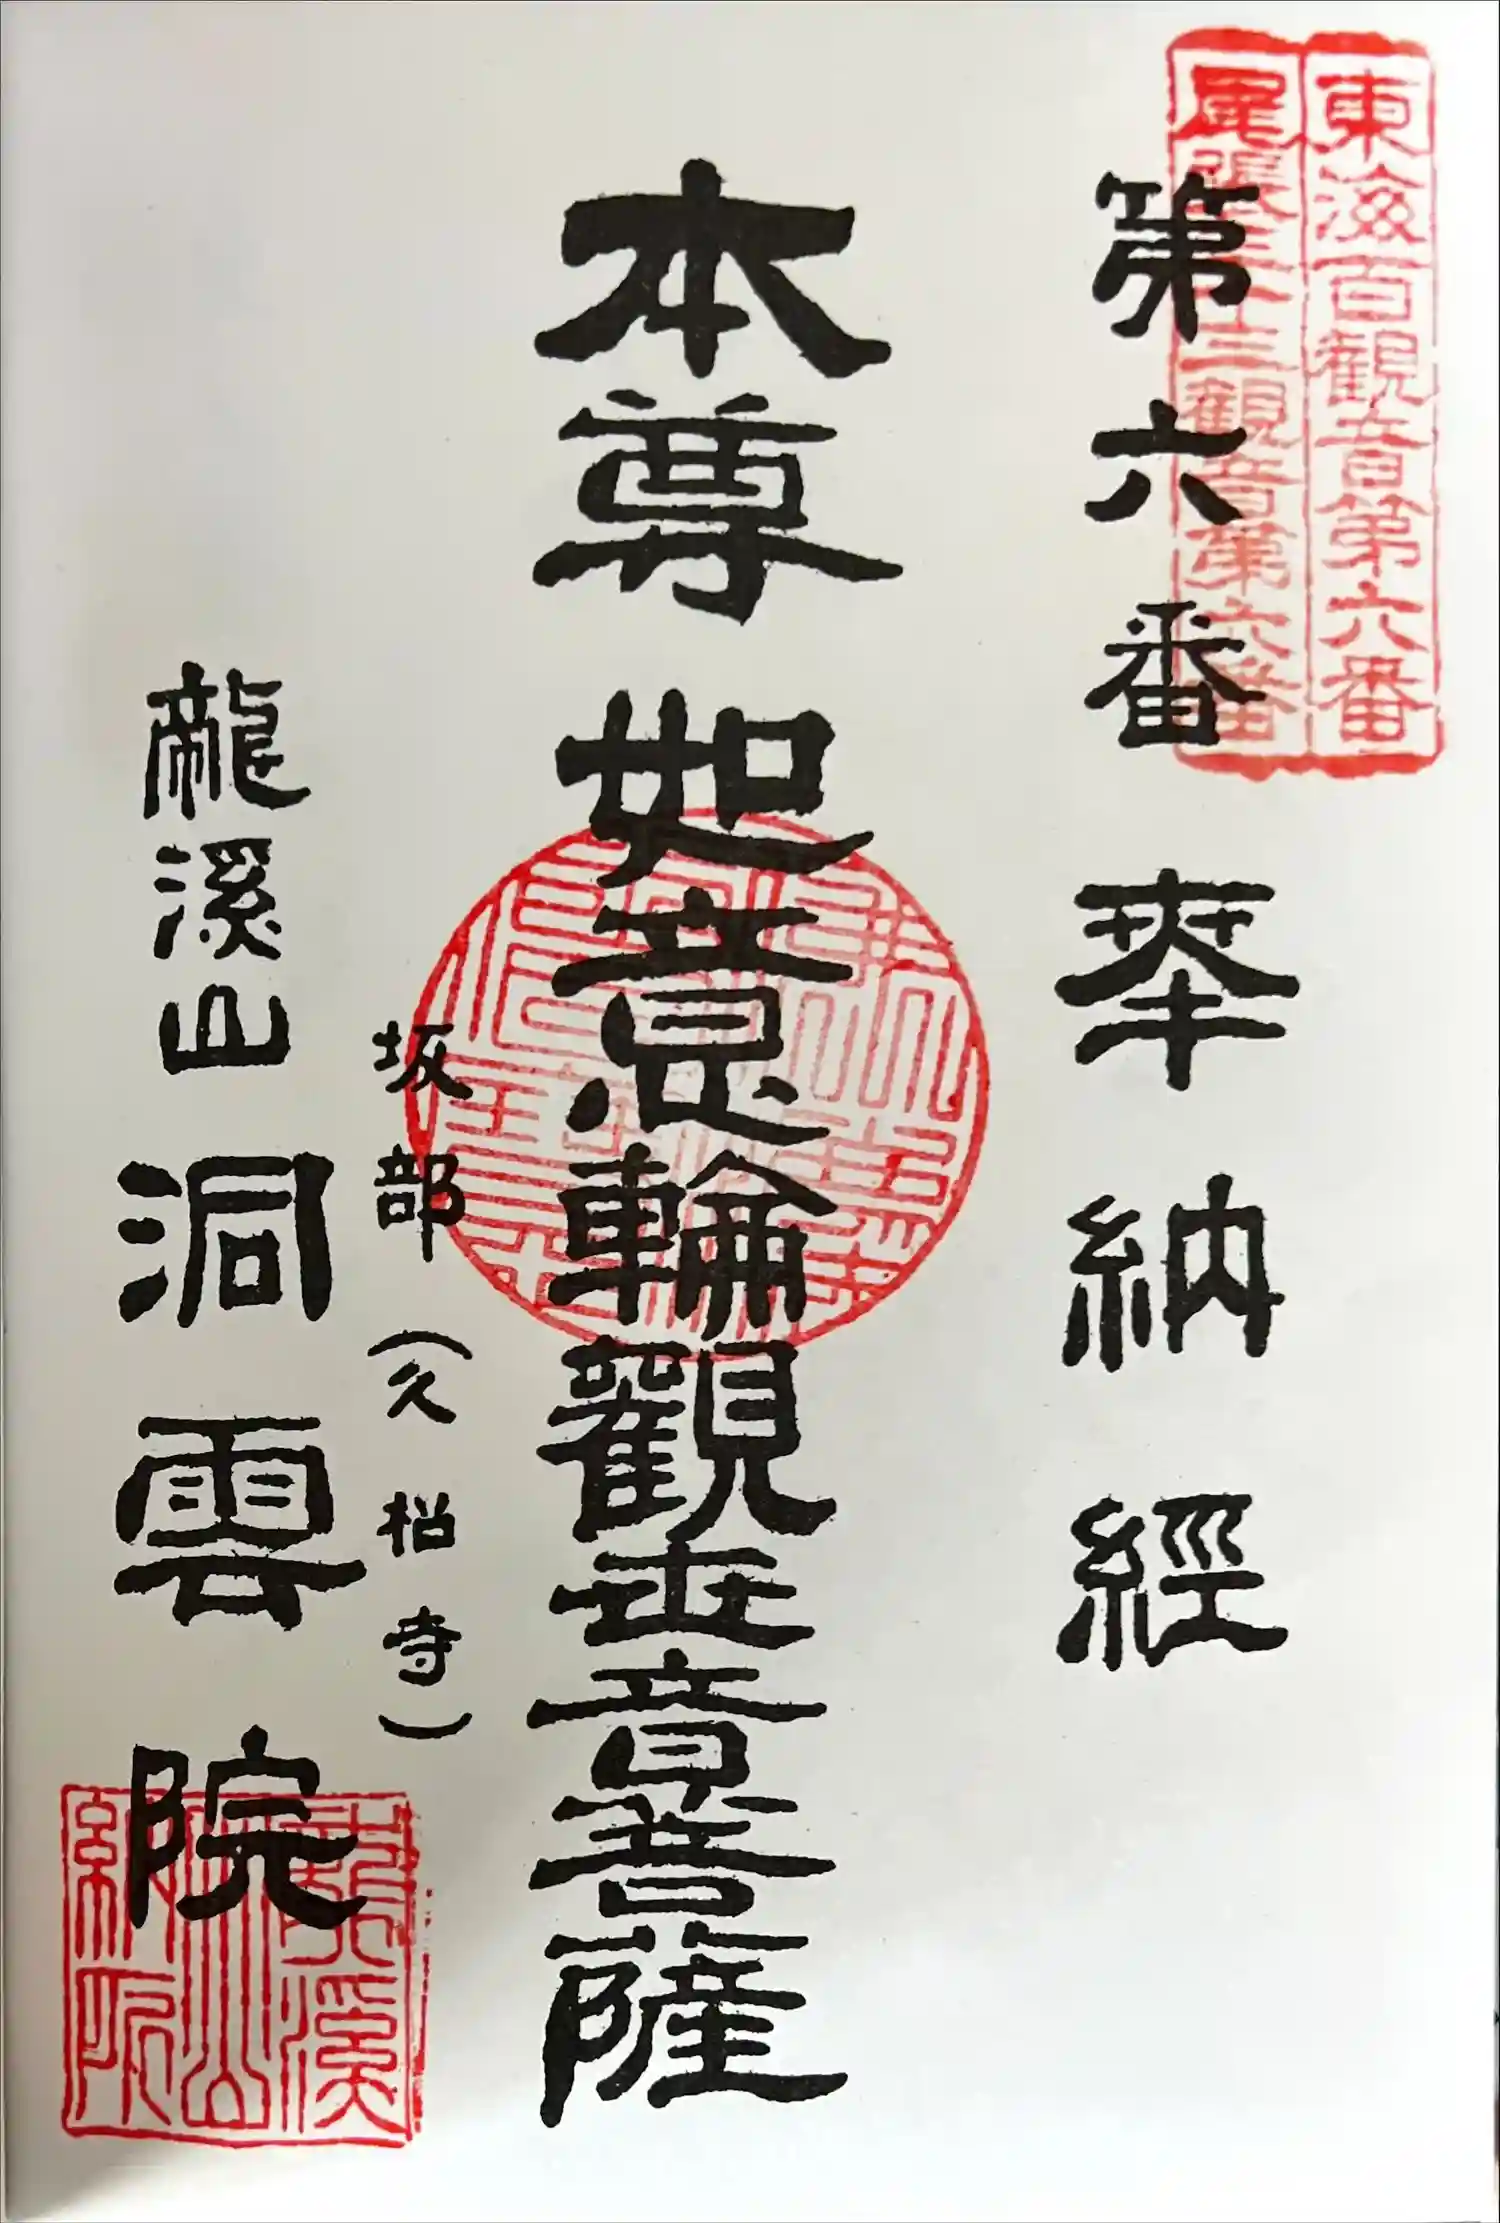 東海百觀音第六番
尾張三十三観音第六番
第六番 奉納經
本尊 如意輪觀世音菩薩
坂部(久松寺)
龍溪山 洞雲院
龍溪
山
納所